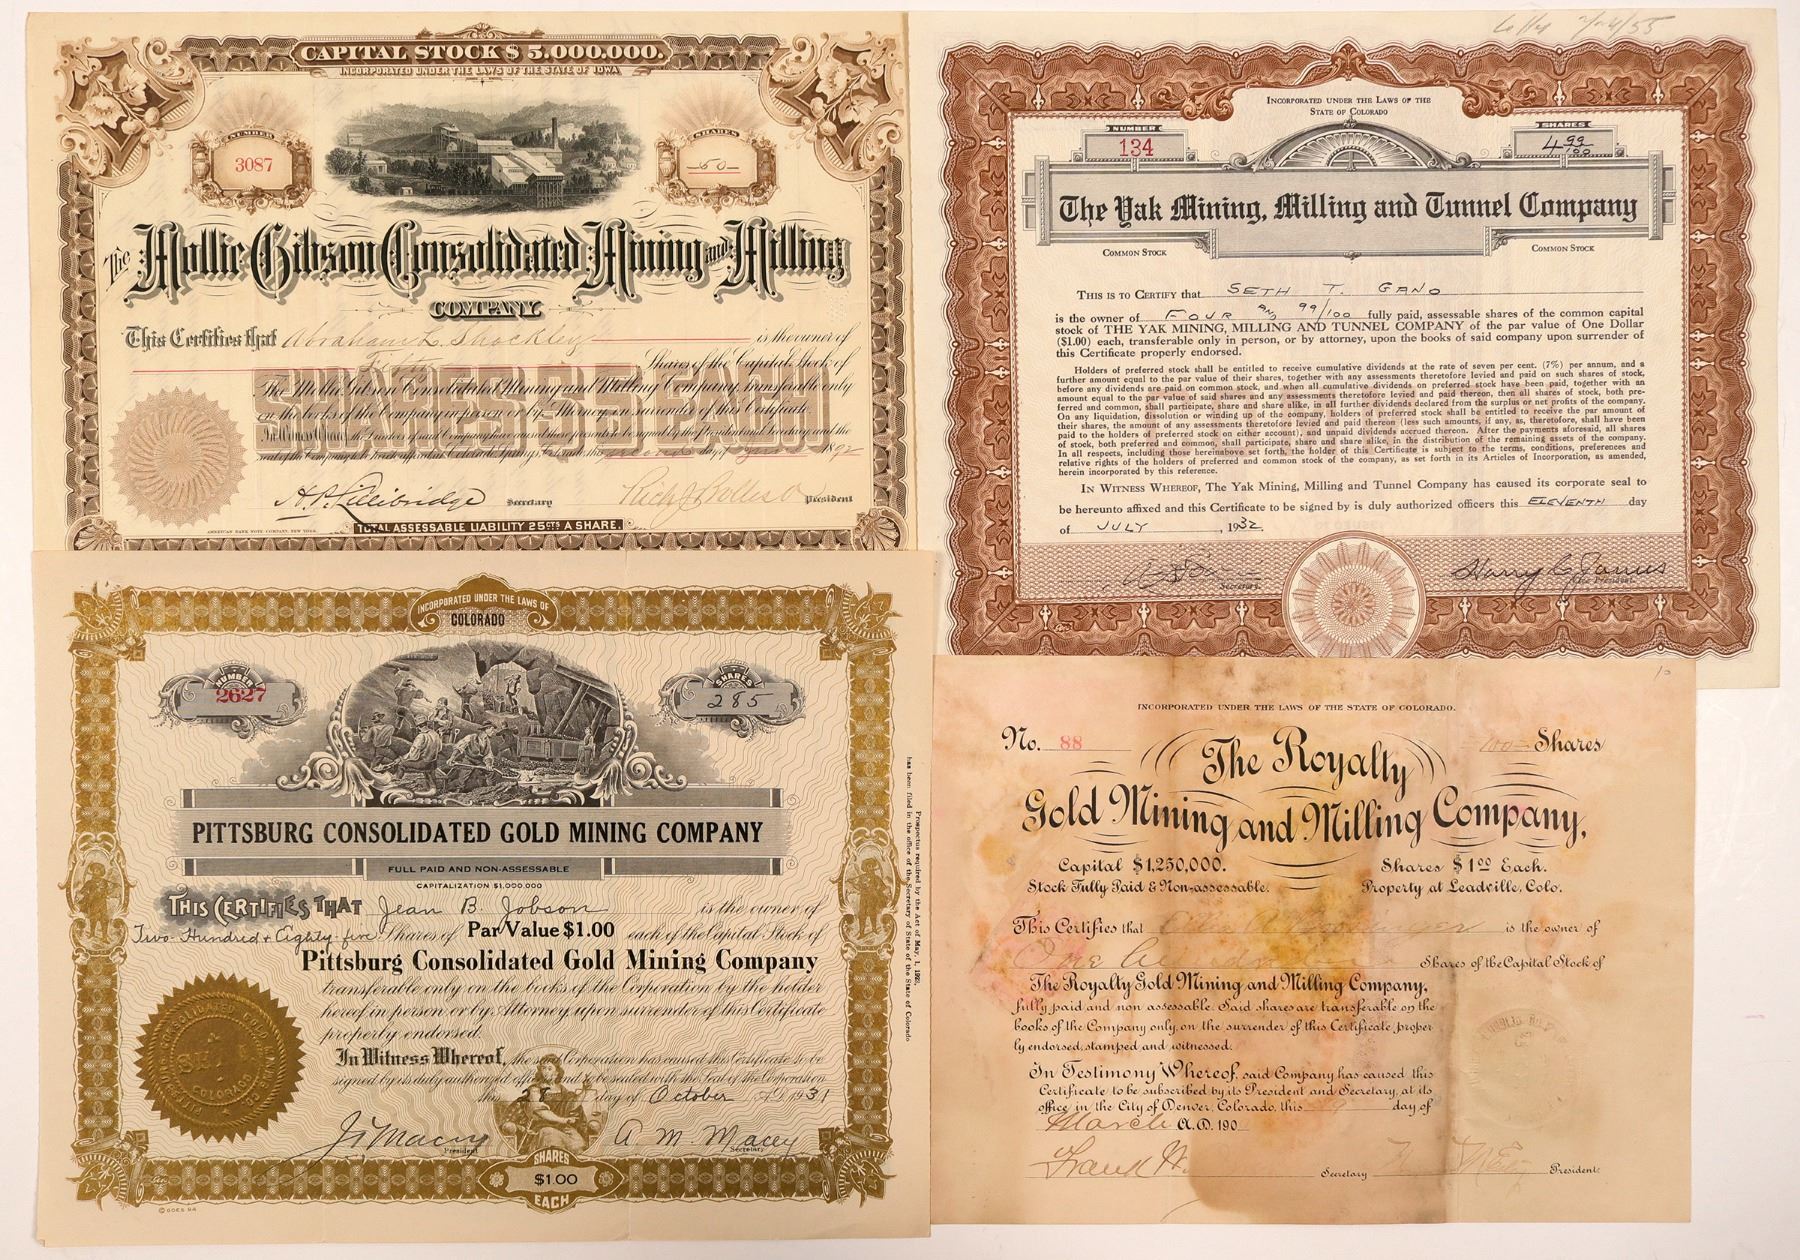 CAPITAL STOCK $ 5,000,000.
INCORPORATED UNDER THE LAWS OF THE STATE OF IOWA
NUMBER
3087
SHARES
50
The Mollie Gibson Consolidated Mining and Milling
COMPANY.
This Certifies that Abraham L. Shockley is the owner of
Fifty Shares of the Capital Stock of
SHARES $5 EACH
The Mollie Gibson Consolidated Mining and Milling Company, transferable only
on the books of the Company in person or by Attorney on surrender of this Certificate.
In Witness Whereof, the President and Secretary and the
seal of the Company
Secretary
President
AMERICAN BANK NOTE COMPANY, NEW YORK.
TOTAL ASSESSABLE LIABILITY 25CTS A SHARE.
INCORPORATED UNDER THE LAWS OF THE
STATE OF COLORADO
NUMBER
134
SHARES
4 99/100
The Yak Mining, Milling and Tunnel Company
COMMON STOCK
COMMON STOCK
THIS IS TO CERTIFY that SETH T. GANO
is the owner of FOUR AND 99/100 fully paid, assessable shares of the common capital
stock of THE YAK MINING, MILLING AND TUNNEL COMPANY of the par value of One Dollar
($1.00) each, transferable only in person, or by attorney, upon the books of said company upon surrender of
this Certificate properly endorsed.
Holders of preferred stock shall be entitled to receive cumulative dividends at the rate of seven per cent. (7%) per annum, and a
further amount equal to the par value of their shares, together with any assessments theretofore levied and paid on such shares of stock,
before any dividends are paid on common stock, and when all cumulative dividends on preferred stock have been paid, together with an
amount equal to the par value of said shares and any assessments theretofore levied and paid thereon, then all shares of stock, both pre-
ferred and common, shall participate, share and share alike, in all further dividends declared from the surplus or net profits of the company.
On any liquidation, dissolution or winding up of the company, holders of preferred stock shall be entitled to receive the par amount of
their shares, the amount of any assessments theretofore levied and paid thereon (less such amounts, if any, as, theretofore, shall have been
paid to the holders of preferred stock on either account), and unpaid dividends accrued thereon. After the payments aforesaid, all shares
of stock, both preferred and common, shall participate, share and share alike, in the distribution of the remaining assets of the company.
In all respects, including those hereinabove set forth, the holder of this Certificate is subject to the terms, conditions, preferences and
relative rights of the holders of preferred and common stock of the company, as set forth in its Articles of Incorporation, as amended,
herein incorporated by this reference.
IN WITNESS WHEREOF, The Yak Mining, Milling and Tunnel Company has caused its corporate seal to
be hereunto affixed and this Certificate to be signed by is duly authorized officers this ELEVENTH day
of JULY, 1932.
Secretary.
Harry C. James
Vice President.
INCORPORATED UNDER THE LAWS OF
COLORADO
NUMBER
2627
SHARES
285
PITTSBURG CONSOLIDATED GOLD MINING COMPANY
FULL PAID AND NON-ASSESSABLE
CAPITALIZATION $1,000,000
THIS CERTIFIES THAT Jean B. Jobson is the owner of
Two Hundred & Eighty five Shares of Par Value $1.00 each of the Capital Stock of
Pittsburg Consolidated Gold Mining Company
transferable only on the books of the Corporation by the holder
hereof in person or by Attorney upon surrender of this Certificate
properly endorsed.
In Witness Whereof, the said Corporation has caused this Certificate to be
signed by its duly authorized officers and to be sealed with the Seal of the Corporation
this 28 day of October A.D. 1931
President
A. M. Macey
Secretary
SHARES
$1.00
EACH
© GOES 94
PITTSBURG CONSOLIDATED GOLD MINING CO.
SEAL
COLORADO
Prospectus required by the Act of May, 1, 1923,
has been filed in the office of the Secretary of State of the State of Colorado
INCORPORATED UNDER THE LAWS OF THE STATE OF COLORADO.
No. 88
100 Shares
The Royalty
Gold Mining and Milling Company,
Capital $1,250,000.
Shares $1.00 Each.
Stock Fully Paid & Non-assessable.
Property at Leadville, Colo.
This Certifies that is the owner of
One Hundred Shares of the Capital Stock of
The Royalty Gold Mining and Milling Company,
fully paid and non assessable. Said shares are transferable on the
books of the Company only, on the surrender of this Certificate proper
ly endorsed, stamped and witnessed.
In Testimony Whereof, said Company has caused this
Certificate to be subscribed by its President and Secretary, at its
office in the City of Denver, Colorado, this day of
March A.D. 190
Frank H.
Secretary
President